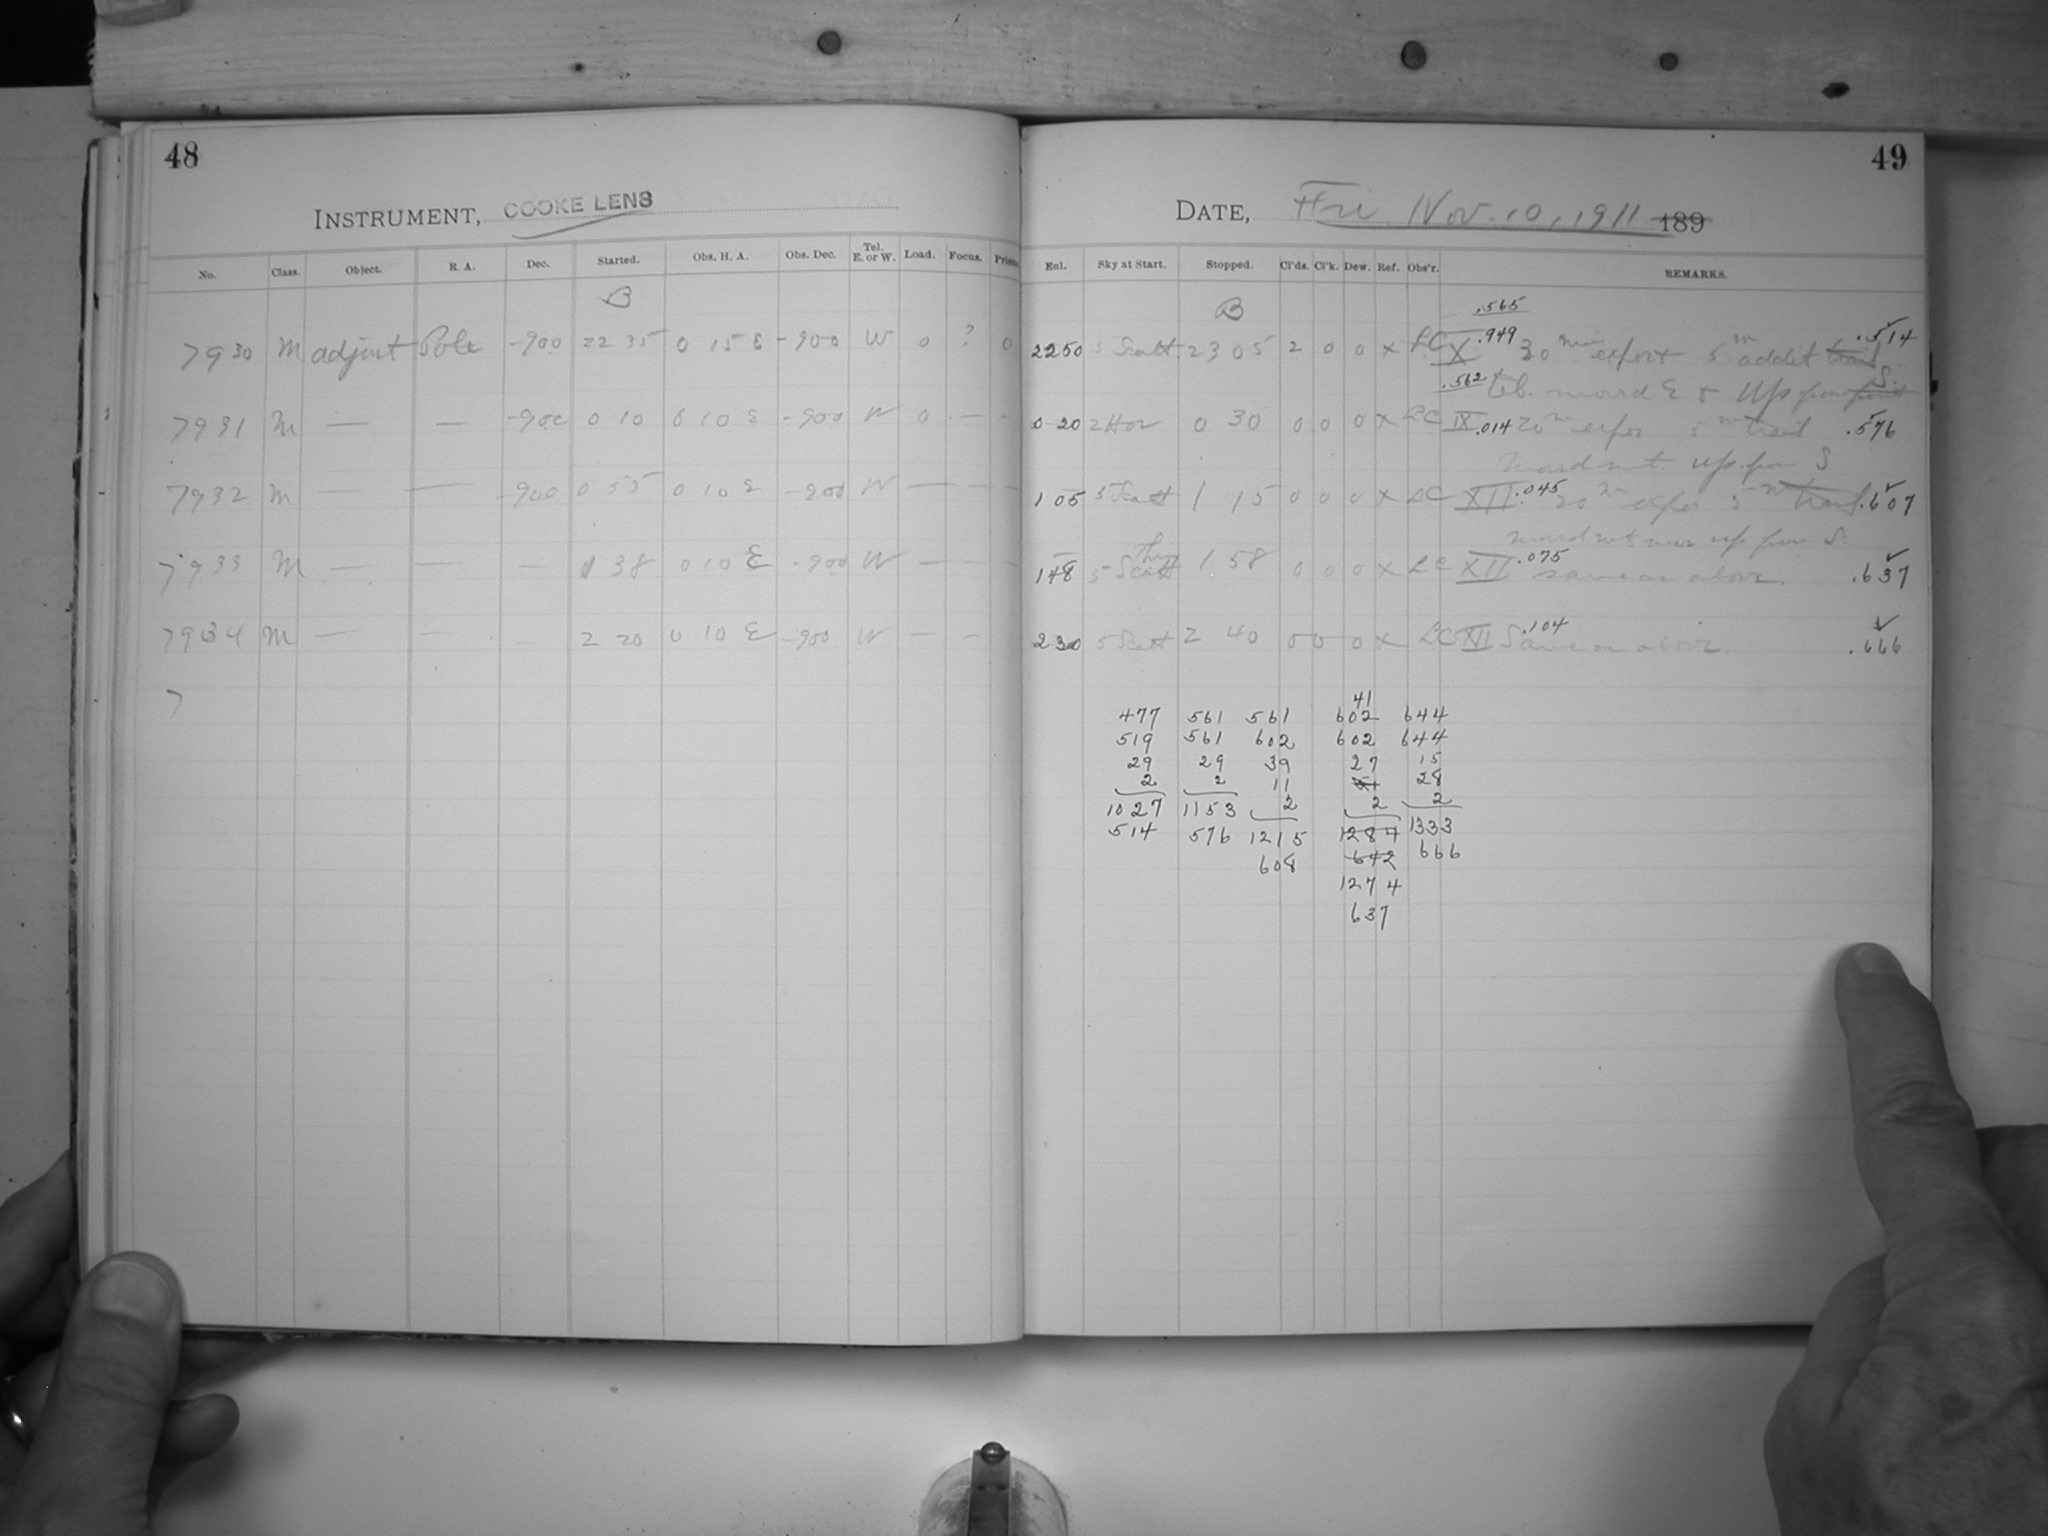 48
INSTRUMENT, COOKE LENS
No. Class. Object. R A. Dec. Started. Obs. H. A. Obs. Dec. Tel. E. or W. Load. Focus.
B
7930 M adjust Pole -900 22 35 0 15 E -900 W 0 ? 0
7931 M — — -900 0 10 0 10 E -900 W 0 - -
7932 M — — -900 0 55 0 10 E -900 W — — —
7933 M — — — 1 38 0 10 E -900 W — — —
7934 M — — — 2 20 0 10 E -900 W — —
7
49
DATE, Fri Nov. 10, 1911 189
Eol. Sky at Start. Stopped. Cl'ds. Cl'k. Dew. Ref. Obs'r. REMARKS.
B .565
2250 5 Scatt 2305 2 0 0 x LC X .949 20 min expos 5m addit trail .514
.562 moved E & Up from S.
0 20 2 Hor 0 30 0 0 0 x LC IX .014 20m expos 5m trail .576
moved mt. up from S
1 05 5 Scatt 1 15 0 0 0 x LC XII .045 20m expos 5m trail .607
up from S.
148 5 Scatt Thin 1 58 0 0 0 x LC XII .075 same as above. .637
230 5 Scatt 2 40 0 0 0 x LC XII .104 Same as above. .666
41
477 561 561 602 644
519 561 602 602 644
29 29 39 27 15
2 2 11 28
1027 1153 2 2 2
514 576 1215 1284 1333
608 642 666
1274
637